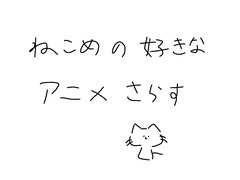 ねこめの好きな
アニメ さらす